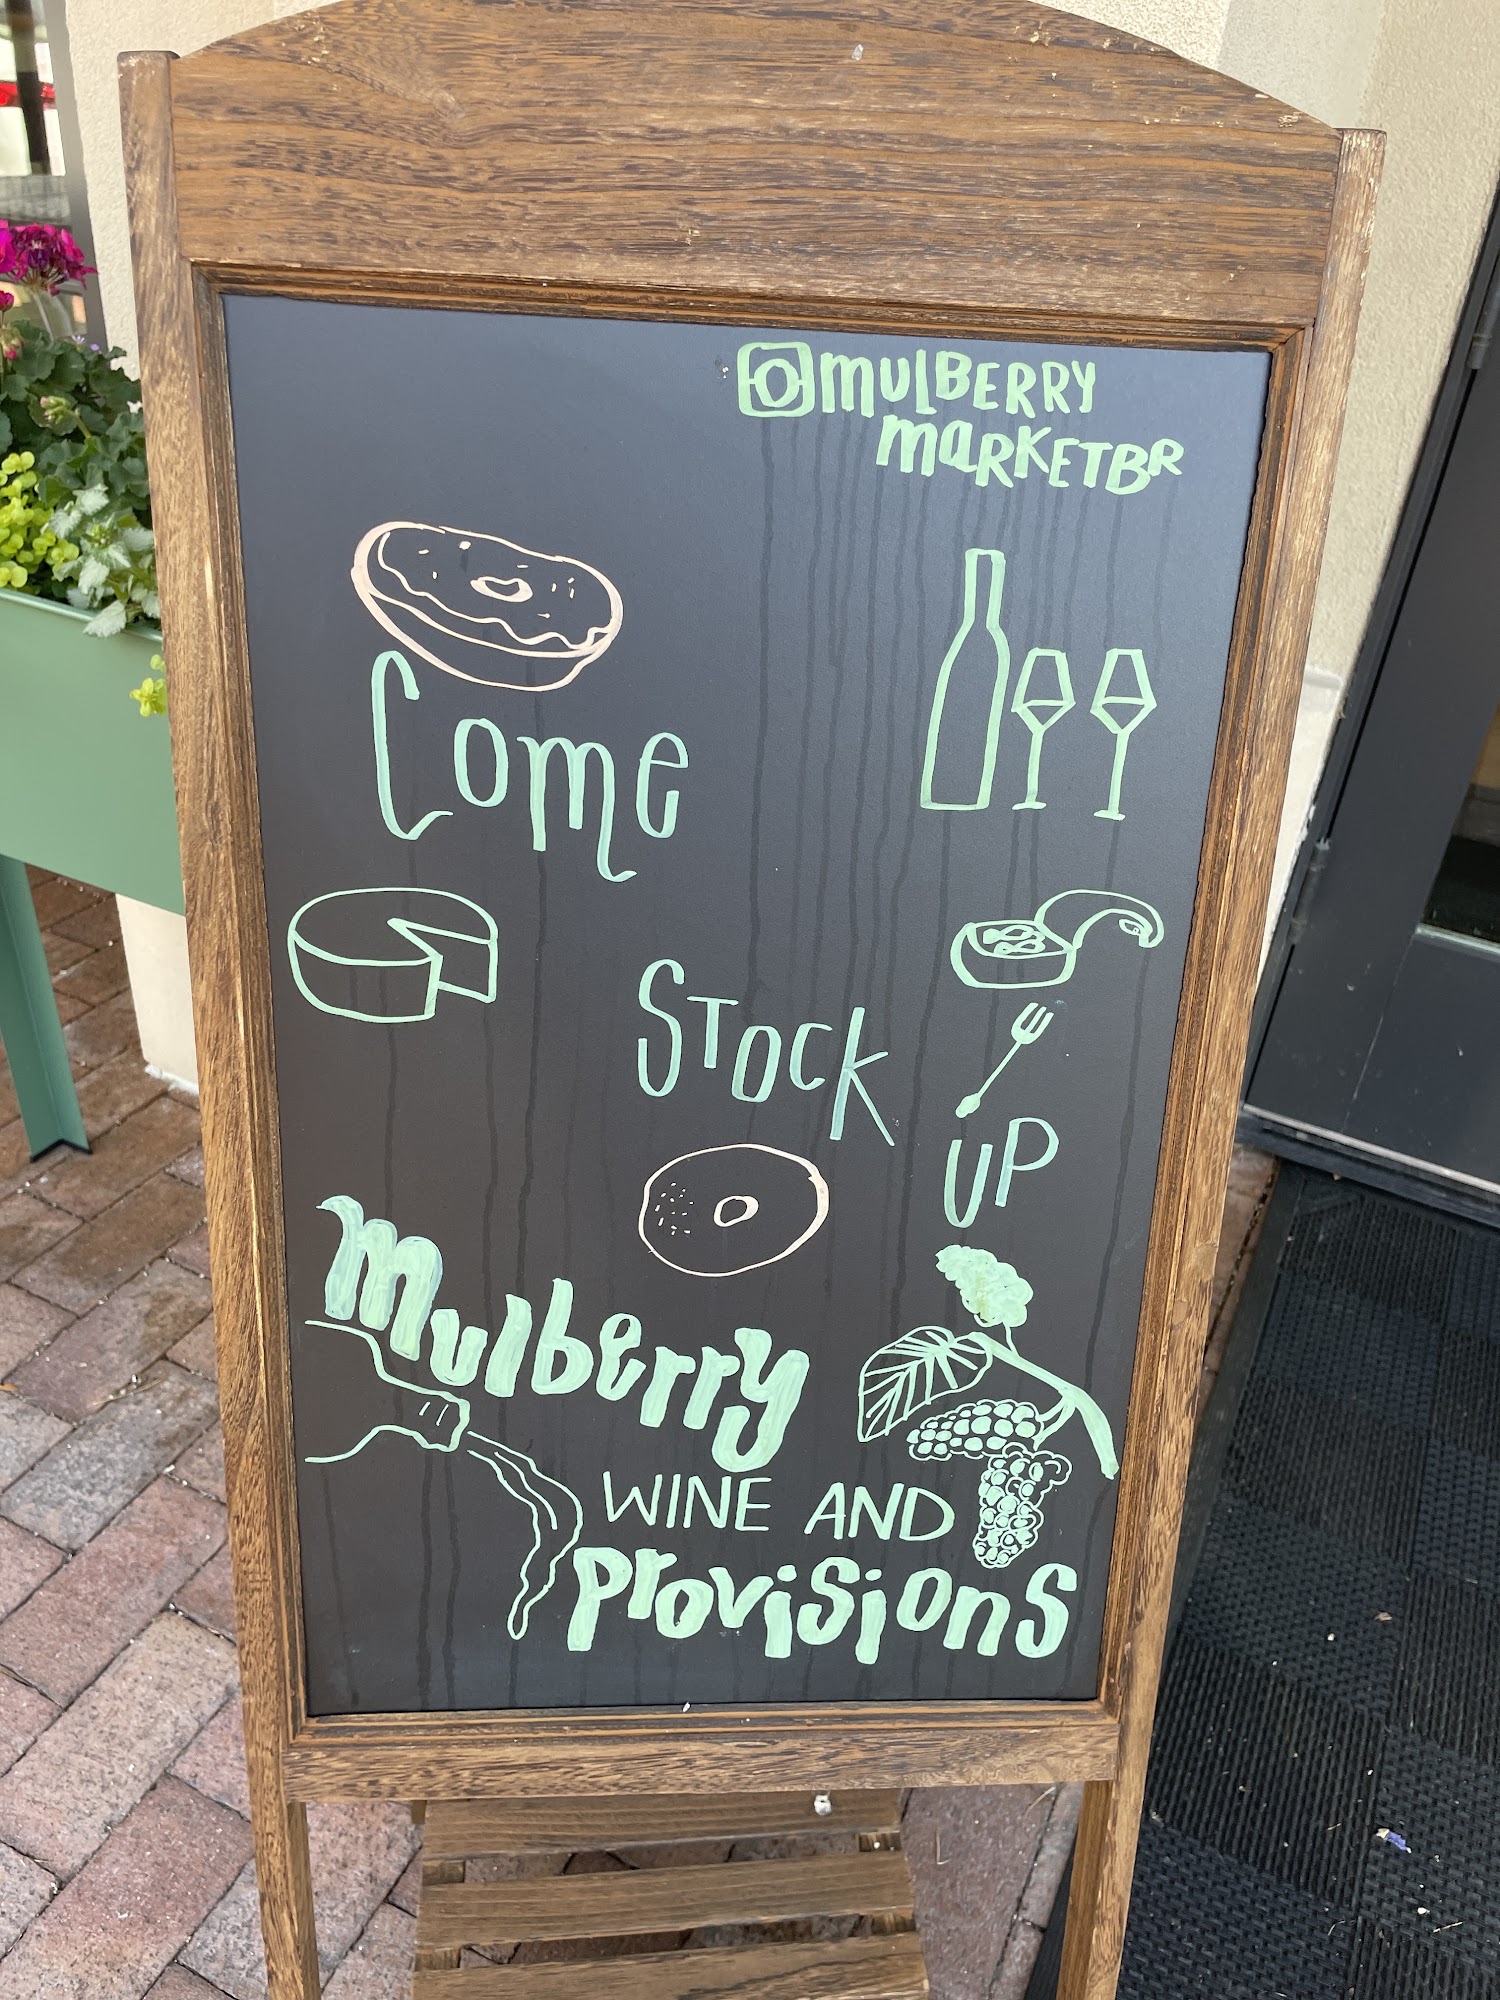 MULBERRY
MARKETBR
Come
STOCK
UP
Mulberry
WINE AND
Provisions